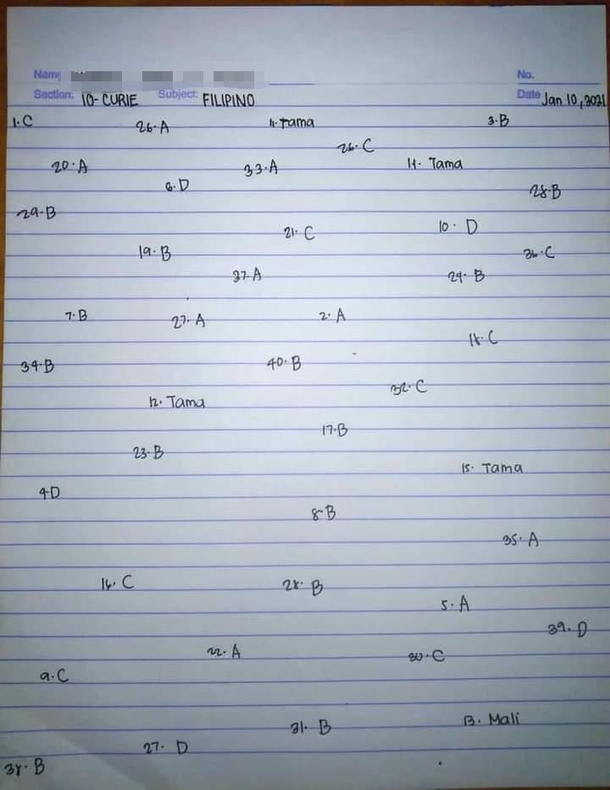 Name No.
Section: 10-CURIE Subject: FILIPINO Date Jan 10, 2021
1. C 26. A 11. Tama 3. B
26. C
20. A 33. A 14. Tama
6. D 28. B
29. B
21. C 10. D
19. B 36. C
37. A 24. B
7. B 27. A 2. A
18. C
34. B 40. B
32. C
12. Tama
17. B
23. B
15. Tama
4 D
8. B
35. A
16. C 28. B
5. A
39. D
22. A 30. C
9. C
31. B 13. Mali
27. D
38. B